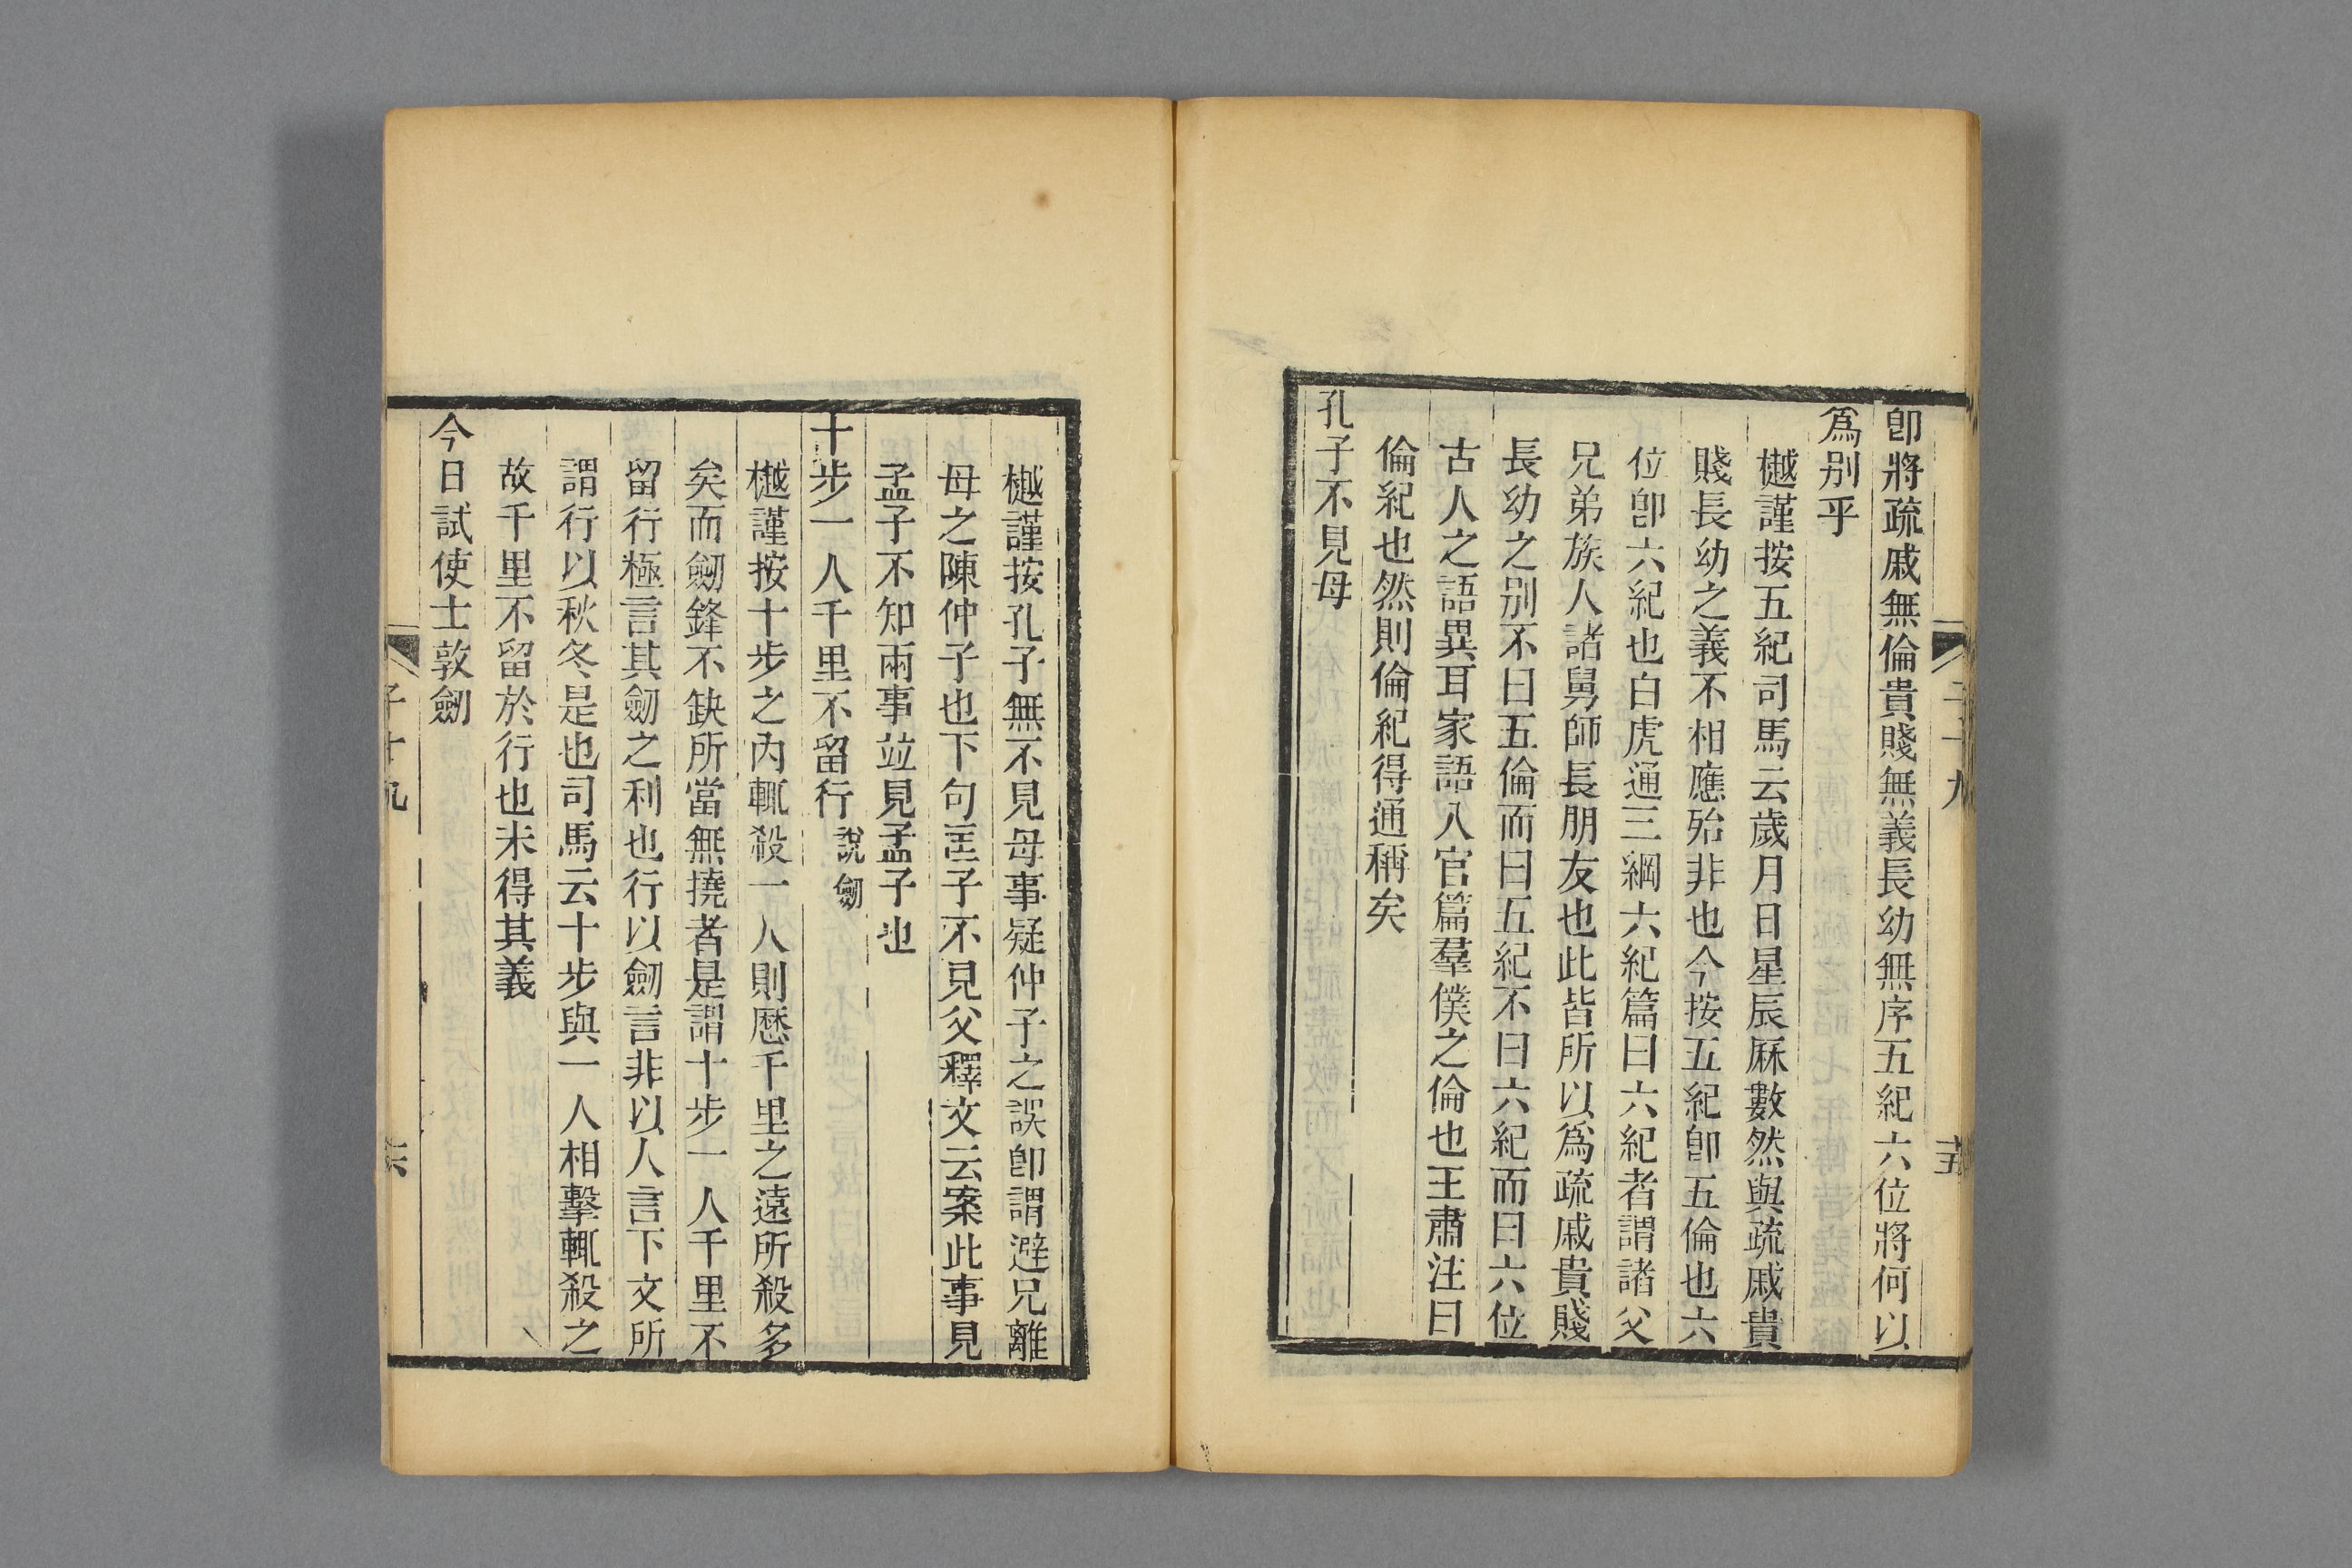 卽將疏戚無倫貴賤無義長幼無序五紀六位將何以
爲别乎
樾謹按五紀司馬云歲月日星辰厤數然與疏戚貴
賤長幼之義不相應殆非也今按五紀卽五倫也六
位卽六紀也白虎通三綱六紀篇曰六紀者謂諸父
兄弟族人諸舅師長朋友也此皆所以爲疏戚貴賤
長幼之别不曰五倫而曰五紀不曰六紀而曰六位
古人之語異耳家語入官篇羣僕之倫也王肅注曰
倫紀也然則倫紀得通稱矣
孔子不見母
樾謹按孔子無不見母事疑仲子之誤卽謂避兄離
母之陳仲子也下句匡子不見父釋文云案此事見
孟子不知兩事竝見孟子也
十步一人千里不留行說劒
樾謹按十步之內輒殺一人則歷千里之遠所殺多
矣而劒鋒不缺所當無撓者是謂十步一人千里不
留行極言其劒之利也行以劒言非以人言下文所
謂行以秋冬是也司馬云十步與一人相擊輒殺之
故千里不留於行也未得其義
今日試使士敦劒
子十九
六